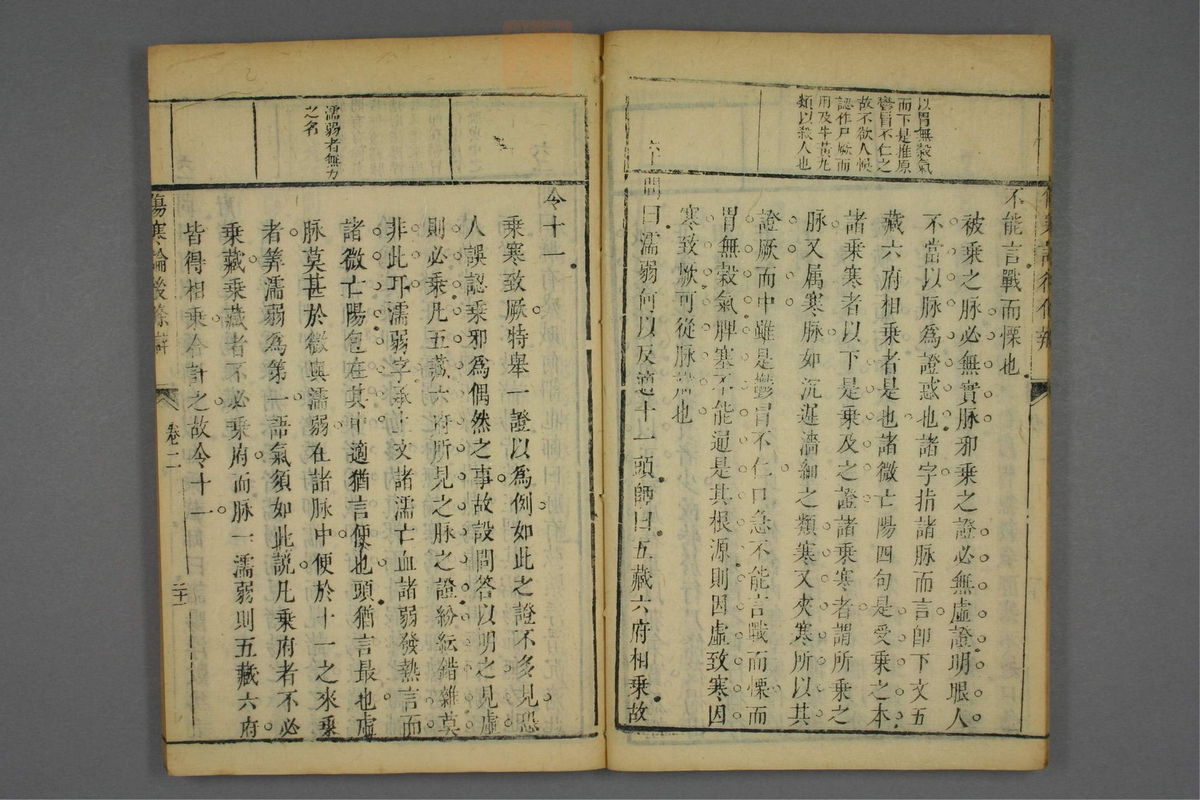 以胃無穀氣
而下是推原
鬱冒不仁之
故不欲人候
認作尸厥而
用及牛黃九
類以殺人也
不能言戰而慄也
被乘之脉必無實脉邪乘之證必無虛證明眼人
不當以脉爲證惑也諸字指諸脉而言卽下文五
藏六府相乘者是也諸微亡陽四句是受乘之本
諸乘寒者以下是乘及之證諸乘寒者謂所乘之
脉又属寒脉如沉遲濇細之類寒又夾寒所以其
證厥而中雖是鬱冒不仁口急不能言戰而慄而
胃無穀氣脾塞不能通是其根源則因虛致寒因
寒致厥可從脉 也
六十
問曰濡弱何以反適十一頭師曰五藏六府相乘故
令十一
濡弱者無力
之名
乘寒致厥特舉一證以爲例如此之證不多見恐
人誤認乘邪爲偶然之事故設問答以明之見虛
則必乘凡五藏六府所見之脉之證紛紜錯雜莫
非此耳濡弱字承上文諸濡亡血諸弱發熱言而
諸微亡陽包在其中適猶言便也頭猶言最也虛
脉莫甚於微與濡弱在諸脉中便於十一之來乘
者筭濡弱爲第一語氣須如此說凡乘府者不必
乘藏乘藏者不必乘府而脉一濡弱則五藏六府
皆得相乘合計之故令十一
傷寒論後條辯
卷二